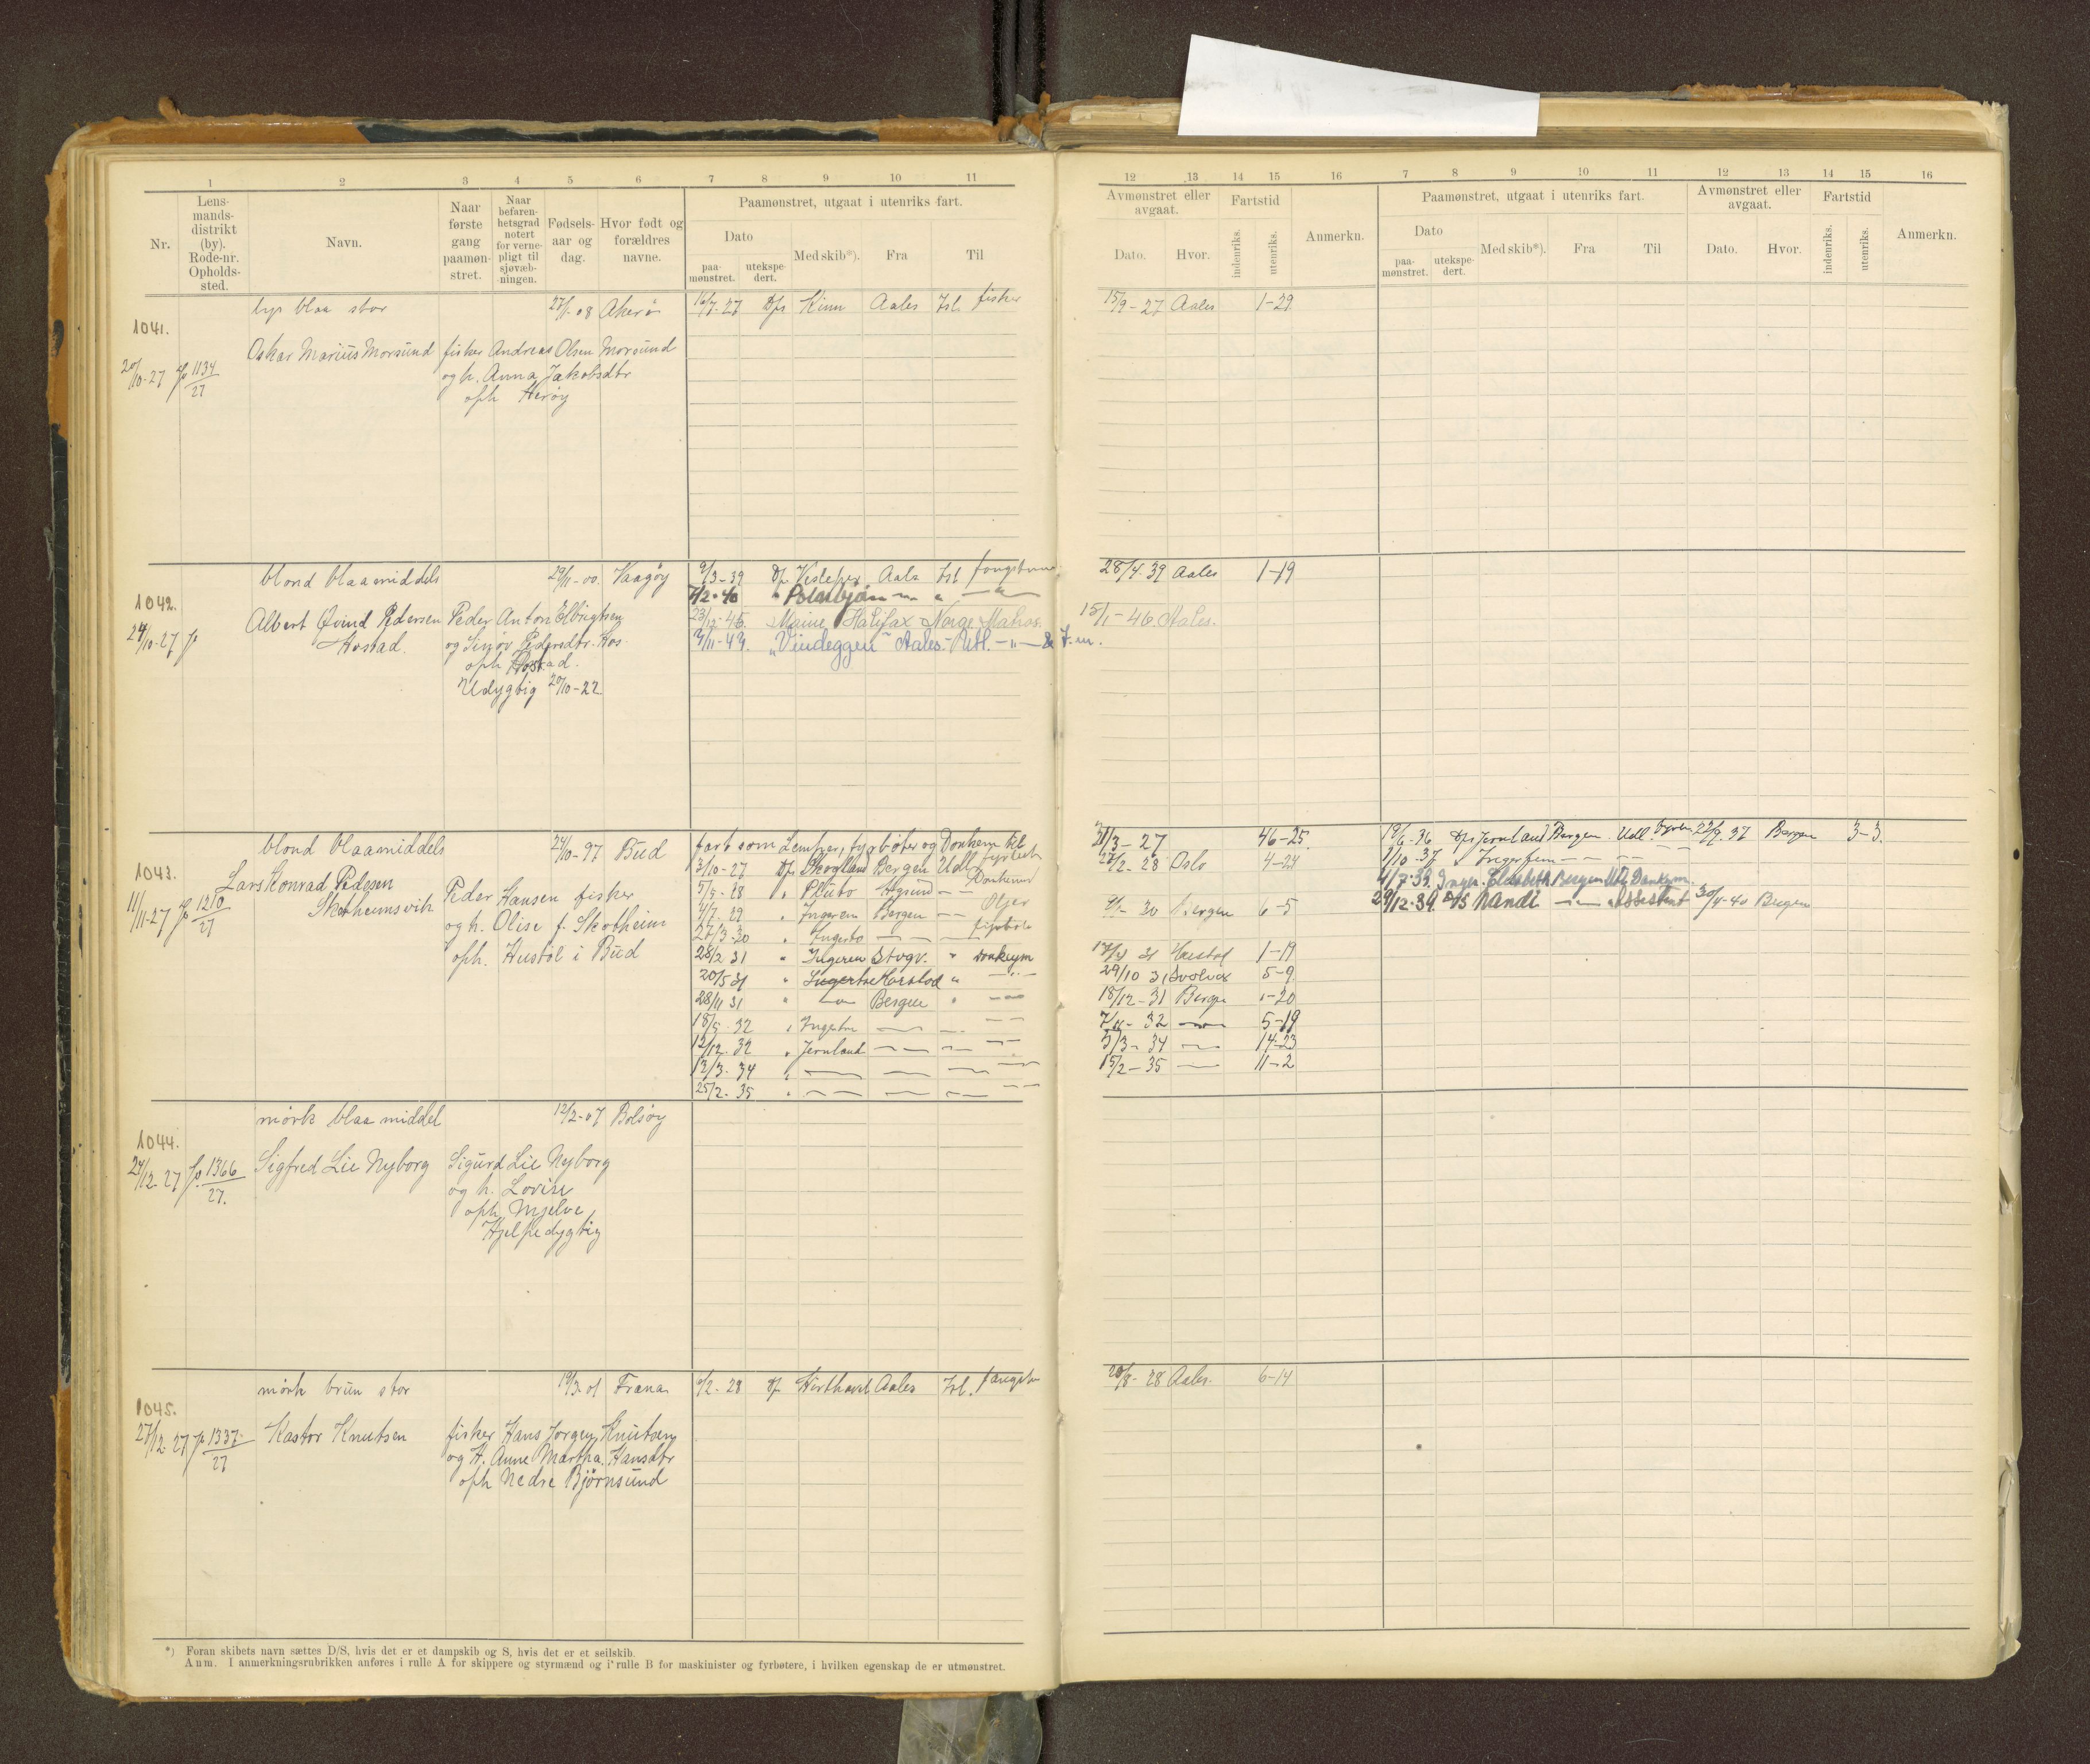 1 2 3 4 5 6 7 8 9 10 11
Nr.
Lens-
mands-
distrikt
(by).
Rode-nr.
Opholds-
sted.
Navn.
Naar
første
gang
paamøn-
stret.
Naar
befaren-
hetsgrad
notert
for verne-
pligt til
sjøvæb-
ningen.
Fødsels-
aar og
dag.
Hvor født og
forældres
navne.
Paamønstret, utgaat i utenriks fart.
Dato
paa-
mønstret.
utekspe-
dert.
Med skib*).
Fra
Til
1041. lys blaa stor 27/1-08 Akerö 16/7-27 D/s Kinn Aales Isl. fisker
Oskar Marius Morsund fisker Andreas Olsen Morsund
20/10-27 1134/27 og h. Anna Jakobsdtr
oph Herøy
1042. blond blaa middels 29/11-00. Vaagøy 9/3-39 Vesleper Aals Isl
7/2-40 Polarbjørn
Albert Øvind Pedersen Peder Anton 23/12-45. Maine Halifax Norge Matros.
24/10-27 Hostad. og Pedersdtr. 3/11-49. "Vindeggen" Aales.-Utl.
oph Hostad.
Udygtig 20/10-22.
1043. blond blaa middels 24/10-97 Bud fart som Lemper, fyrbøter og Donkem til
3/10-27 Skogland Bergen Udl
Lars Konrad Pedersen 5/5-28 Pluto
11/11-27 1210/27 Skotheimsvik Peder Hansen fisker 4/7-29 Ingerem Bergen
og h. Olise f. Skotheim 27/3-30
oph. Hustøl i Bud 28/2 31 Ingerem Donkeym
20/5 31 Harstad
28/11 31 Bergen
18/5-32
12/12-32 Jernland
12/3-34
25/2-35
1044. mörk blaa middel 12/2-07 Bolsøy
Sigfred Lie Nyborg Sigurd Lie Nyborg
27. 1366/27. og h. Lovise
oph. Mjelve
Hjelpedygtig
1045. mörk brun stor 19/3-01 Fræna 2-28 Aales Isl. fangstm
27/12-27 1337/27 Kastor Knutsen fisker Hans Jørgen Knutsen
og H. Anne Martha Hansdtr
oph Nedre Björnsund
*) Foran skibets navn sættes D/S, hvis det er et dampskib og S, hvis det er et seilskib.
Anm. I anmerkningsrubrikken anføres i rulle A for skippere og styrmænd og i rulle B for maskinister og fyrbøtere, i hvilken egenskap de er utmønstret.
12 13 14 15 16 7 8 9 10 11 12 13 14 15 16
Avmønstret eller
avgaat.
Dato.
Hvor.
Fartstid
indenriks.
utenriks.
Anmerkn.
Paamønstret, utgaat i utenriks fart.
Dato
paa-
mønstret.
utekspe-
dert.
Med skib*).
Fra
Til
Avmønstret eller
avgaat.
Dato.
Hvor.
Fartstid
indenriks.
utenriks.
Anmerkn.
15/9-27 Aales 1-29
28/4-39 Aales 1-19
15/1-46 Aales.
31/3-27 46-25. 19/6-36 D/s Jernland Bergen Udl. 22/9.37 Bergen 3-3.
27/2-28 Oslo 4-24 1/10-37 Ingerfem
4/7-39. Inger Elisabeth Bergen Utl. Donkym.
30 Bergen 6-5 29/12-39. D/S Nandi Assistent 30/4-40 Bergen
31 Harstad 1-19
29/10 31 Svolvær 5-9
18/12-31 Bergen -20
32 5-19
5/3-34 14-23
15/2-35 11-2
20/8-28 Aales. 6-14